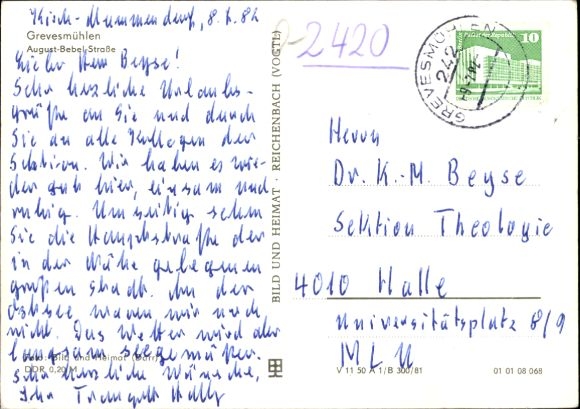 Kirch-Mummendorf, 8.7.82
Grevesmühlen
August-Bebel-Straße
Lieber Herr Beyse!
Sehr herzliche Urlaubs-
grüße an Sie und durch
Sie an alle Kollegen der
Sektion. Wir haben es wie-
der gut hier, einsam und
ruhig. Umseitig sehen
Sie die Hauptstraße der
in der Nähe gelegenen
großen Stadt. An der
Ostsee waren wir noch
nicht. Das Wetter wird aber
langsam
Sehr herzliche Wünsche,
Ihr Traugott Holtz
Foto: Bild und Heimat (Darr)
DDR 0,20 M
BILD UND HEIMAT · REICHENBACH (VOGTL)
2420
GREVESMÜHLEN
242
Palast der Republik
10
DEUTSCHE DEMOKRATISCHE REPUBLIK
Herrn
Dr. K.-M. Beyse
Sektion Theologie
4010 Halle
Universitätsplatz 8/9
MLU
V 11 50 A 1/B 300/81
01 01 08 068